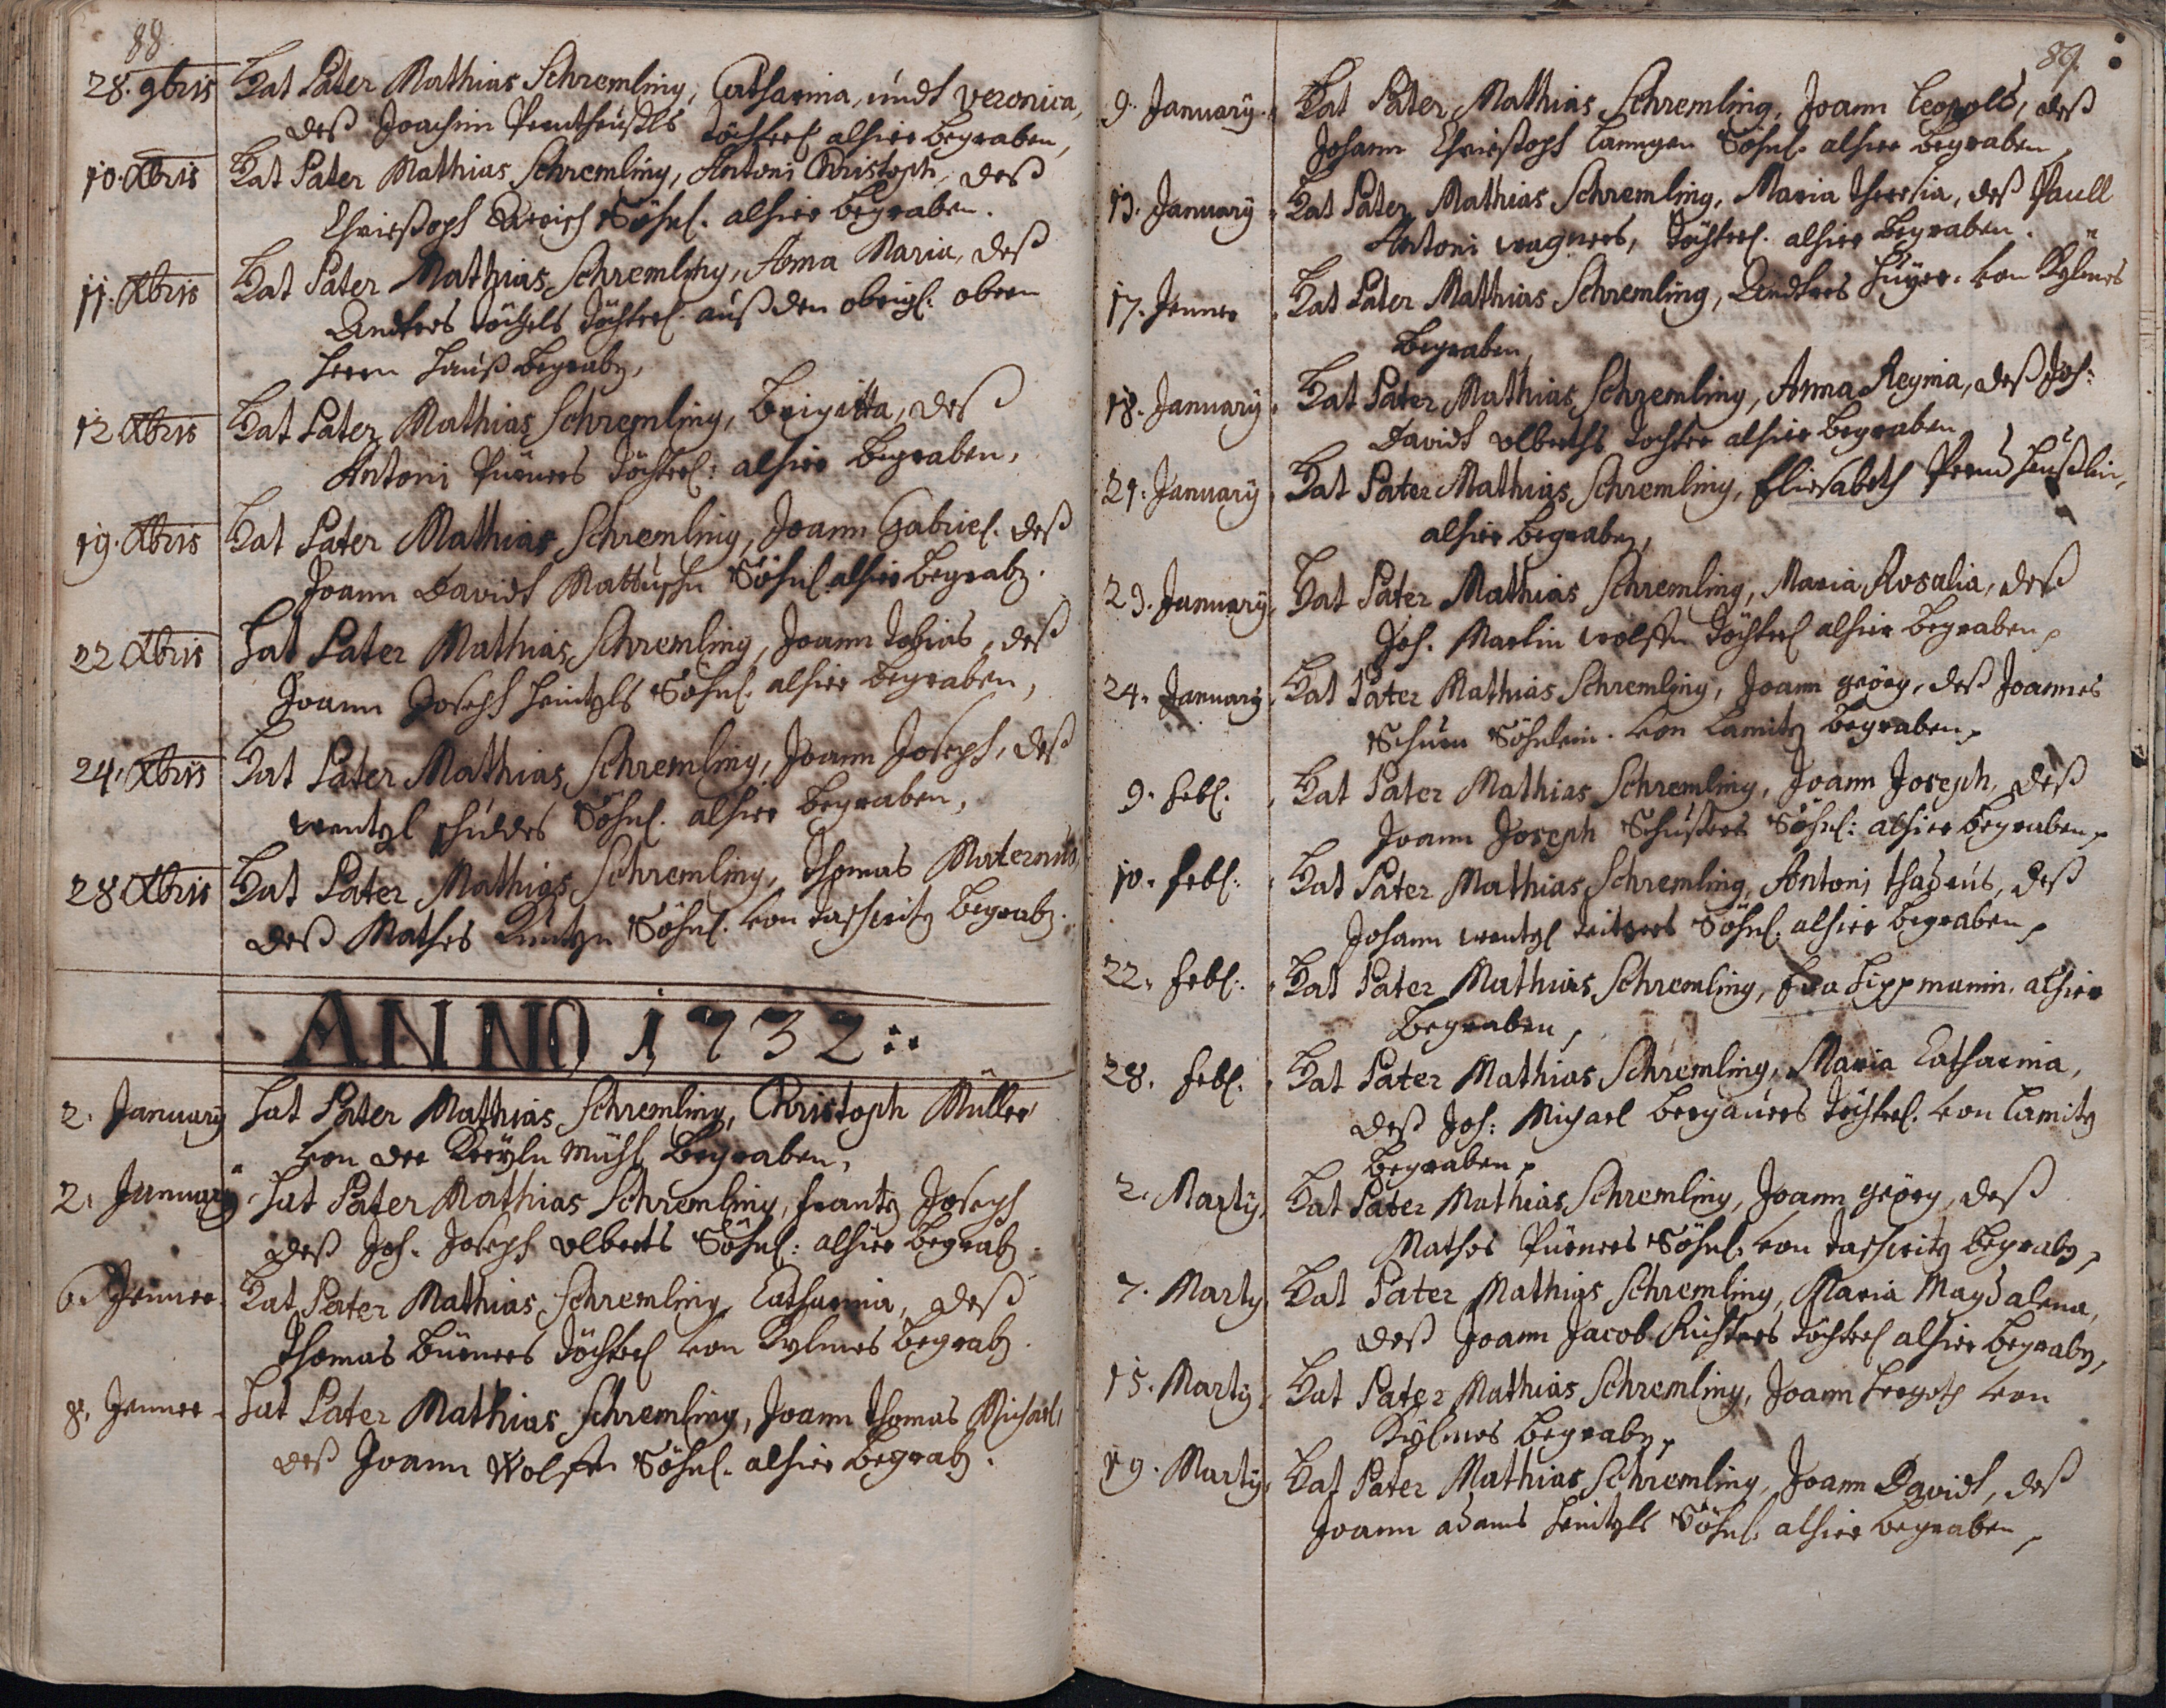 88
28. 9bris Hat Pater Mathias Schremling, Catharina, undt Veronica,
deß Joachim töchterl alhier begraben,
10. Xbris Hat Pater Mathias Schremling, Antoni Christoph, deß
Christoph Söhnl. alhier begraben.
11. Xbris Hat Pater Mathias Schremling, Anna Maria, deß
Andres töchterl. auß den obrigl: obern
Herrn Hauß begrabn,
12 Xbris Hat Pater Mathias Schremling, Brigitta, deß
Antoni Pürners töchterl: alhier begraben,
19. Xbris Hat Pater Mathias Schremling, Joann Gabriel. deß
Joann Davidt Söhnl alhier begrabn.
22 Xbris Hat Pater Mathias Schremling, Joann Tobias, deß
Joann Joseph Heintzls Söhnl. alhier begraben,
24, Xbris Hat Pater Mathias Schremling, Joann Joseph, deß
Wentzl Söhnl. alhier begraben,
28 Xbris Hat Pater Mathias Schremling, Thomas Maternus
deß Mathes Söhnl. von taschwitz begrabn.
ANNO 1732:.
2. January Hat Pater Mathias Schremling, Christoph Müller
von der Mühl begraben,
2. January Hat Pater Mathias Schremling, frantz Joseph
deß Joh. Joseph Ulberts Söhnl: alhier begrabn
6. Jenner Hat Pater Mathias Schremling, Catharina, deß
Thomas Bürners töchterl von Kylmes begrabn.
8. Jenner Hat Pater Mathias Schremling, Joann Thomas Michael,
deß Joann Wolffn Söhnl. alhier begrabn.
89.
9. January Hat Pater Mathias Schremling, Joann Leopold, deß
Johann Christoph Langen Söhnl. alhier begraben,
13. January Hat Pater Mathias Schremling, Maria Theresia, deß Paull
Antoni Wagners, töchterl. alhier begraben.
17. Jenner Hat Pater Mathias Schremling, Andres von Kylmes
begraben,
18. January Hat Pater Mathias Schremling, Anna Regina, deß Joh:
Davidt Ulberths tochter alhier begraben,
21. January Hat Pater Mathias Schremling, Elisabeth
alhier begraben,
23. January Hat Pater Mathias Schremling, Maria Rosalia, deß
Joh. Martin Wolffn töchterl alhier begraben,
24. January Hat Pater Mathias Schremling, Joann geörg, deß Joannes
Söhnlein. von Lamitz begraben,
9. febl. Hat Pater Mathias Schremling, Joann Joseph, deß
Joann Joseph Schusters Söhnl: alhier begraben,
10. febl: Hat Pater Mathias Schremling, Antoni thadeus, deß
Johann Wentzl Söhnl. alhier begraben,
22. febl: Hat Pater Mathias Schremling, Eva Lippmanin, alhier
begraben,
28. febl. Hat Pater Mathias Schremling, Maria Catharina,
deß Joh: Michael Bergauers töchterl. von Lamitz
begraben,
2. Marty Hat Pater Mathias Schremling, Joann geörg, deß
Mathes Pürners Söhnl. von taschwitz begrabn,
7. Marty Hat Pater Mathias Schremling, Maria Magdalena,
deß Joann Jacob Richters töchterl alhier begrabn,
15. Marty Hat Pater Mathias Schremling, Joann von
Kylmes begrabn,
19. Marty Hat Pater Mathias Schremling, Joann Davidt, deß
Joann adams Heintzls Söhnl. alhier begraben,